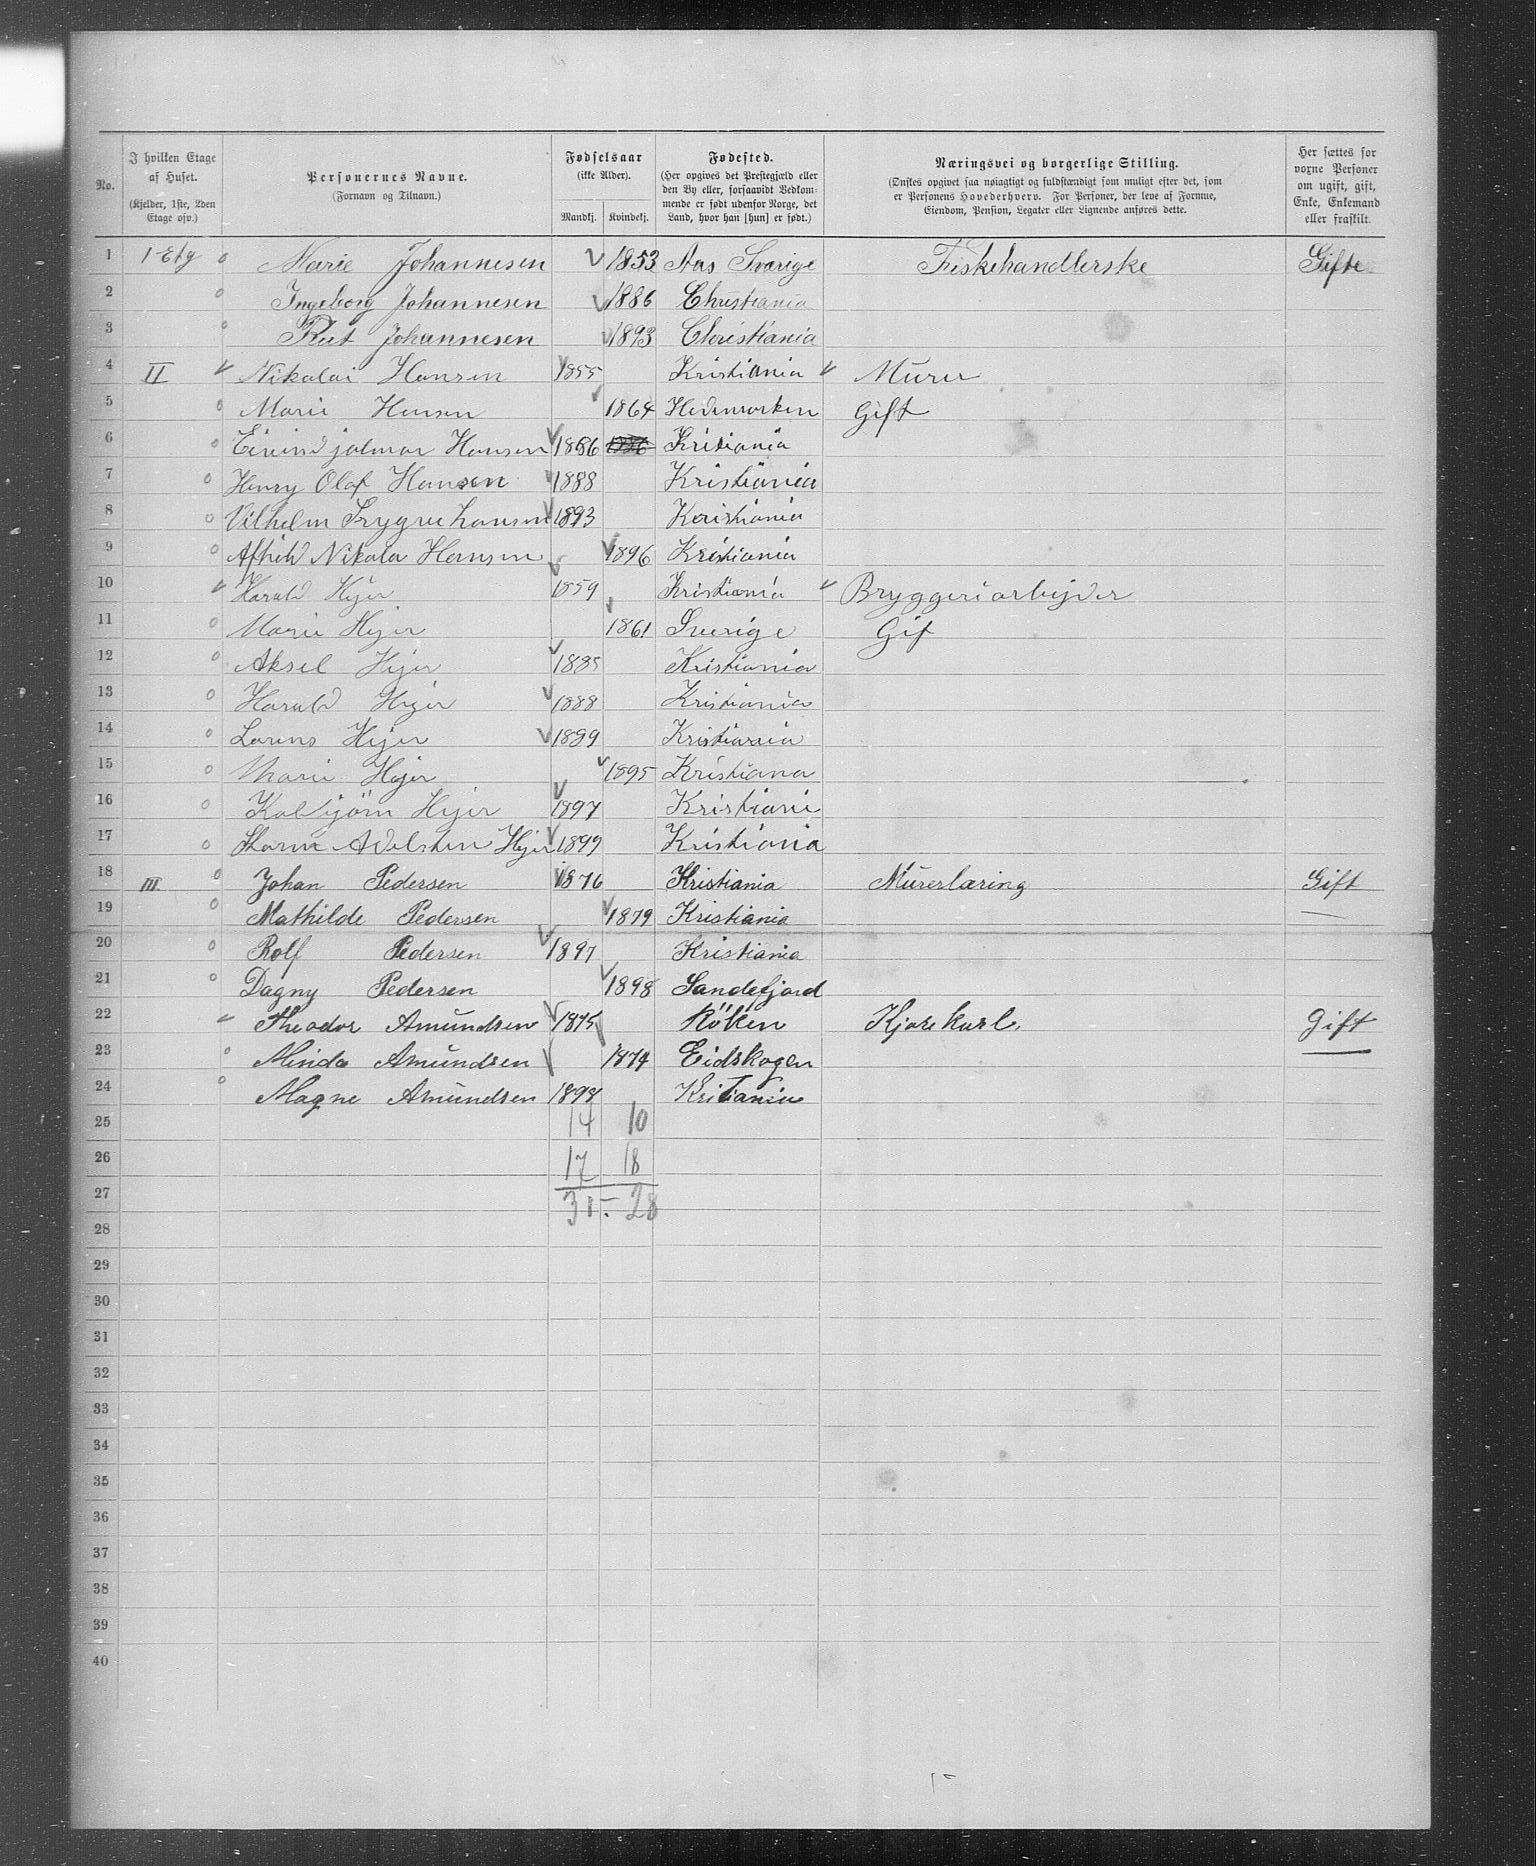 No. I hvilken Etage af Huset. (Kjelder, 1ste, 2den Etage osv.) Personernes Navne. (Fornavn og Tilnavn.) Fødselsaar (ikke Alder). Mandkj. Kvindekj. Fødested. (Her opgives det Prestegjæld eller den By eller, forsaavidt Vedkommende er født udenfor Norge, det Land, hvor han [hun] er født.) Næringsvei og borgerlige Stilling. (Ønskes opgivet saa nøiagtigt og fuldstændigt som muligt efter det, som er Personens Hovederhverv. For Personer, der leve af Formue, Eiendom, Pension, Legater eller Lignende anføres dette. Her sættes for voxne Personer om ugift, gift, Enke, Enkemand eller fraskilt.
1 1-Etg Marie Johannesen 1853 Aas Svarige Fiskehandlerske Gifte
2 Ingeborg Johannesen 1886 Christiania
3 Rut Johannesen 1893 Christiania
4 II Nikolai Hansen 1855 Kristiania Murer
5 Marie Hansen 1864 Hedemarken Gift
6 Hansen 1886 Kritiania
7 Henry Olaf Hansen 1888 Kristiania
8 Vilhelm Trygve Hansen 1893 Kristiania
9 Nikola Hansen 1896 Kristiania
10 Harald Hejer 1859 Kristiania Bryggeriarbejder
11 Marie Hejer 1861 Sverige Gif
12 Aksel Hejer 1885 Kristiania
13 Harald Hejer 1888 Kristiania
14 Lorens Hejer Kristiania
15 Marie Hejer 1895 Kristiana
16 Hejer 1897 Kristiani
17 Hejer 1899 Kristiania
18 III Johan Pedersen 1876 Kristiania Murerlæring Gift
19 Mathilde Pedersen 1879 Kristiania
20 Rolf Pedersen 1897 Kristiania
21 Dagny Pedersen 1898 Sandefjord
22 Theodor Amundsen 1875 Röken Kjørekarl. Gift
23 Minda Amundsen 1874 Eidskogen
24 Magne Amundsen 1898 Kritiania
25 14 10
26 17 18
27 31 - 28
28
29
30
31
32
33
34
35
36
37
38
39
40